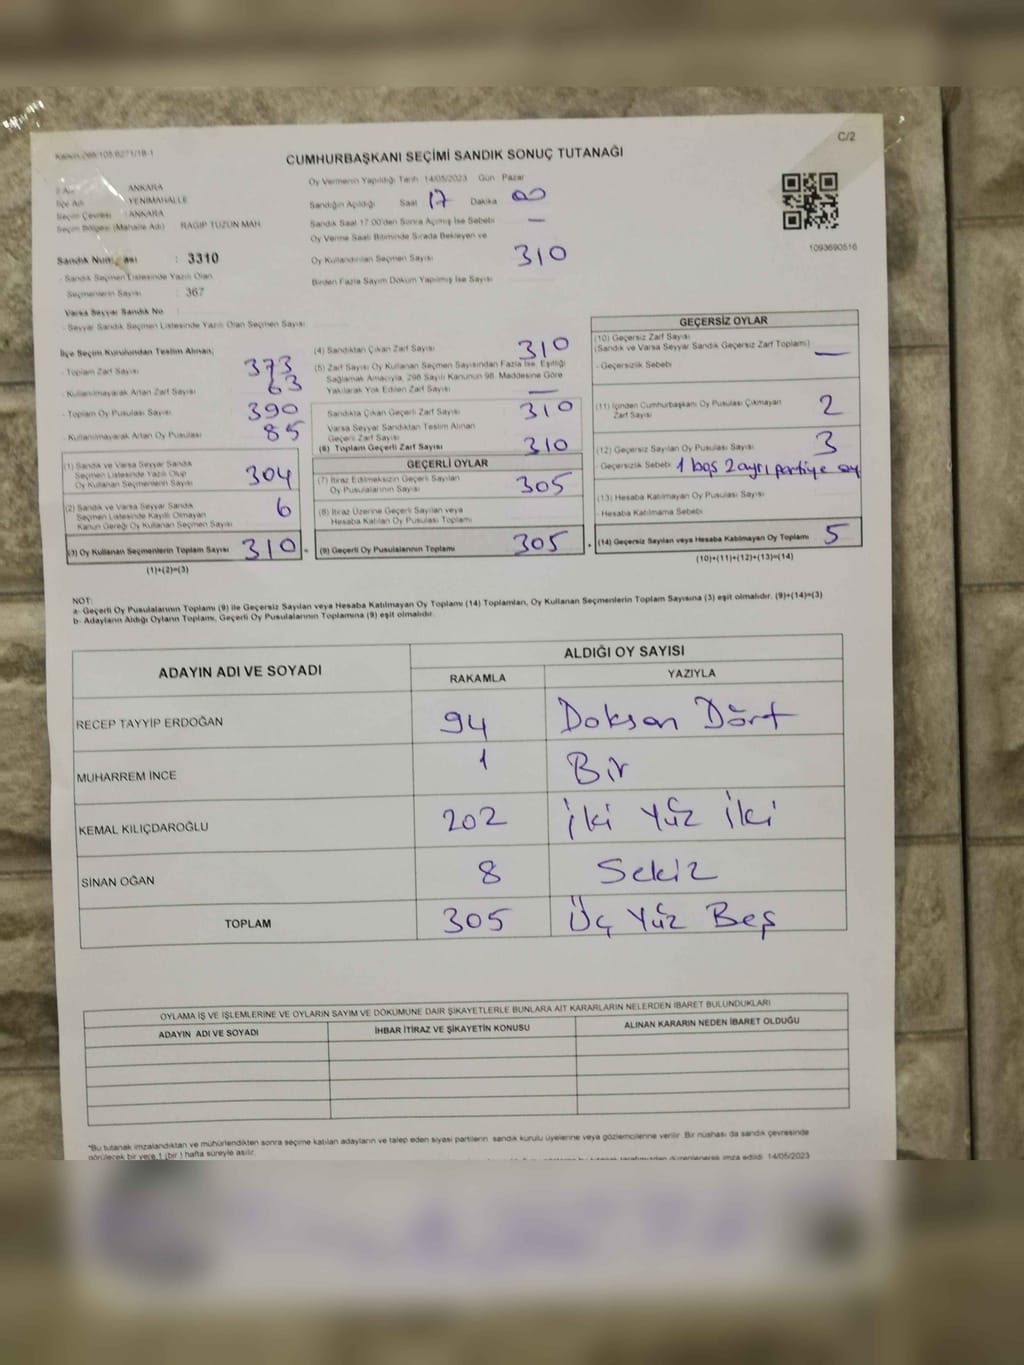 C/2
CUMHURBAŞKANI SEÇİMİ SANDIK SONUÇ TUTANAĞI
ANKARA
İlçe Adı : YENİMAHALLE
Seçim Çevresi : ANKARA
Seçim Bölgesi (Mahalle Adı) RAGIP TÜZÜN MAH
Sandık : 3310
- Sandık Seçmen Listesinde Yazılı Olan
Seçmenlerin Sayısı : 367
Varsa Seyyar Sandık No
- Seyyar Sandık Seçmen Listesinde Yazılı Olan Seçmen Sayısı
Oy Vermenin Yapıldığı Tarih 14/05/2023 Gün Pazar
Sandığın Açıldığı Saat 17 Dakika 00
Sandık Saat 17.00'den Sonra Açılmış İse Sebebi —
Oy Verme Saati Bitiminde Sırada Bekleyen ve
Oy Kullandırılan Seçmen Sayısı 310
Birden Fazla Sayım Döküm Yapılmış İse Sayısı
1093690516
İlçe Seçim Kurulundan Teslim Alınan;
- Toplam Zarf Sayısı 373
- Kullanılmayarak Artan Zarf Sayısı 63
- Toplam Oy Pusulası Sayısı 390
- Kullanılmayarak Artan Oy Pusulası 85
(1) Sandık ve Varsa Seyyar Sandık
Seçmen Listesinde Yazılı Olup
Oy Kullanan Seçmenlerin Sayısı 304
(2) Sandık ve Varsa Seyyar Sandık
Seçmen Listesinde Kayıtlı Olmayan
Kanun Gereği Oy Kullanan Seçmen Sayısı 6
(3) Oy Kullanan Seçmenlerin Toplam Sayısı 310 =
(1)+(2)=(3)
(4) Sandıktan Çıkan Zarf Sayısı 310
(5) Zarf Sayısı Oy Kullanan Seçmen Sayısından Fazla İse, Eşitliği
Sağlamak Amacıyla, 298 Sayılı Kanunun 98. Maddesine Göre
Yakılarak Yok Edilen Zarf Sayısı —
Sandıkta Çıkan Geçerli Zarf Sayısı 310
Varsa Seyyar Sandıktan Teslim Alınan
Geçerli Zarf Sayısı
(6) Toplam Geçerli Zarf Sayısı 310
GEÇERLİ OYLAR
(7) İtiraz Edilmeksizin Geçerli Sayılan
Oy Pusulalarının Sayısı 305
(8) İtiraz Üzerine Geçerli Sayılan veya
Hesaba Katılan Oy Pusulası Toplamı
(9) Geçerli Oy Pusulalarının Toplamı 305 +
GEÇERSİZ OYLAR
(10) Geçersiz Zarf Sayısı
(Sandık ve Varsa Seyyar Sandık Geçersiz Zarf Toplamı) —
- Geçersizlik Sebebi
(11) İçinden Cumhurbaşkanı Oy Pusulası Çıkmayan
Zarf Sayısı 2
(12) Geçersiz Sayılan Oy Pusulası Sayısı 3
Geçersizlik Sebebi 1 boş 2 ayrı partiye oy
(13) Hesaba Katılmayan Oy Pusulası Sayısı
- Hesaba Katılmama Sebebi
(14) Geçersiz Sayılan veya Hesaba Katılmayan Oy Toplamı 5
(10)+(11)+(12)+(13)=(14)
NOT:
a- Geçerli Oy Pusulalarının Toplamı (9) ile Geçersiz Sayılan veya Hesaba Katılmayan Oy Toplamı (14) Toplamları, Oy Kullanan Seçmenlerin Toplam Sayısına (3) eşit olmalıdır. (9)+(14)=(3)
b- Adayların Aldığı Oyların Toplamı, Geçerli Oy Pusulalarının Toplamına (9) eşit olmalıdır.
ADAYIN ADI VE SOYADI ALDIĞI OY SAYISI
RAKAMLA YAZIYLA
RECEP TAYYİP ERDOĞAN 94 Doksan Dört
MUHARREM İNCE 1 Bir
KEMAL KILIÇDAROĞLU 202 İki Yüz İki
SİNAN OĞAN 8 Sekiz
TOPLAM 305 Üç Yüz Beş
OYLAMA İŞ VE İŞLEMLERİNE VE OYLARIN SAYIM VE DÖKÜMÜNE DAİR ŞİKAYETLERLE BUNLARA AİT KARARLARIN NELERDEN İBARET BULUNDUKLARI
ADAYIN ADI VE SOYADI İHBAR İTİRAZ VE ŞİKAYETİN KONUSU ALINAN KARARIN NEDEN İBARET OLDUĞU
*Bu tutanak imzalandıktan ve mühürlendikten sonra seçime katılan adayların ve talep eden siyasi partilerin sandık kurulu üyelerine veya gözlemcilerine verilir. Bir nüshası da sandık çevresinde
görülecek bir yere 1 (bir) hafta süreyle asılır.
14/05/2023